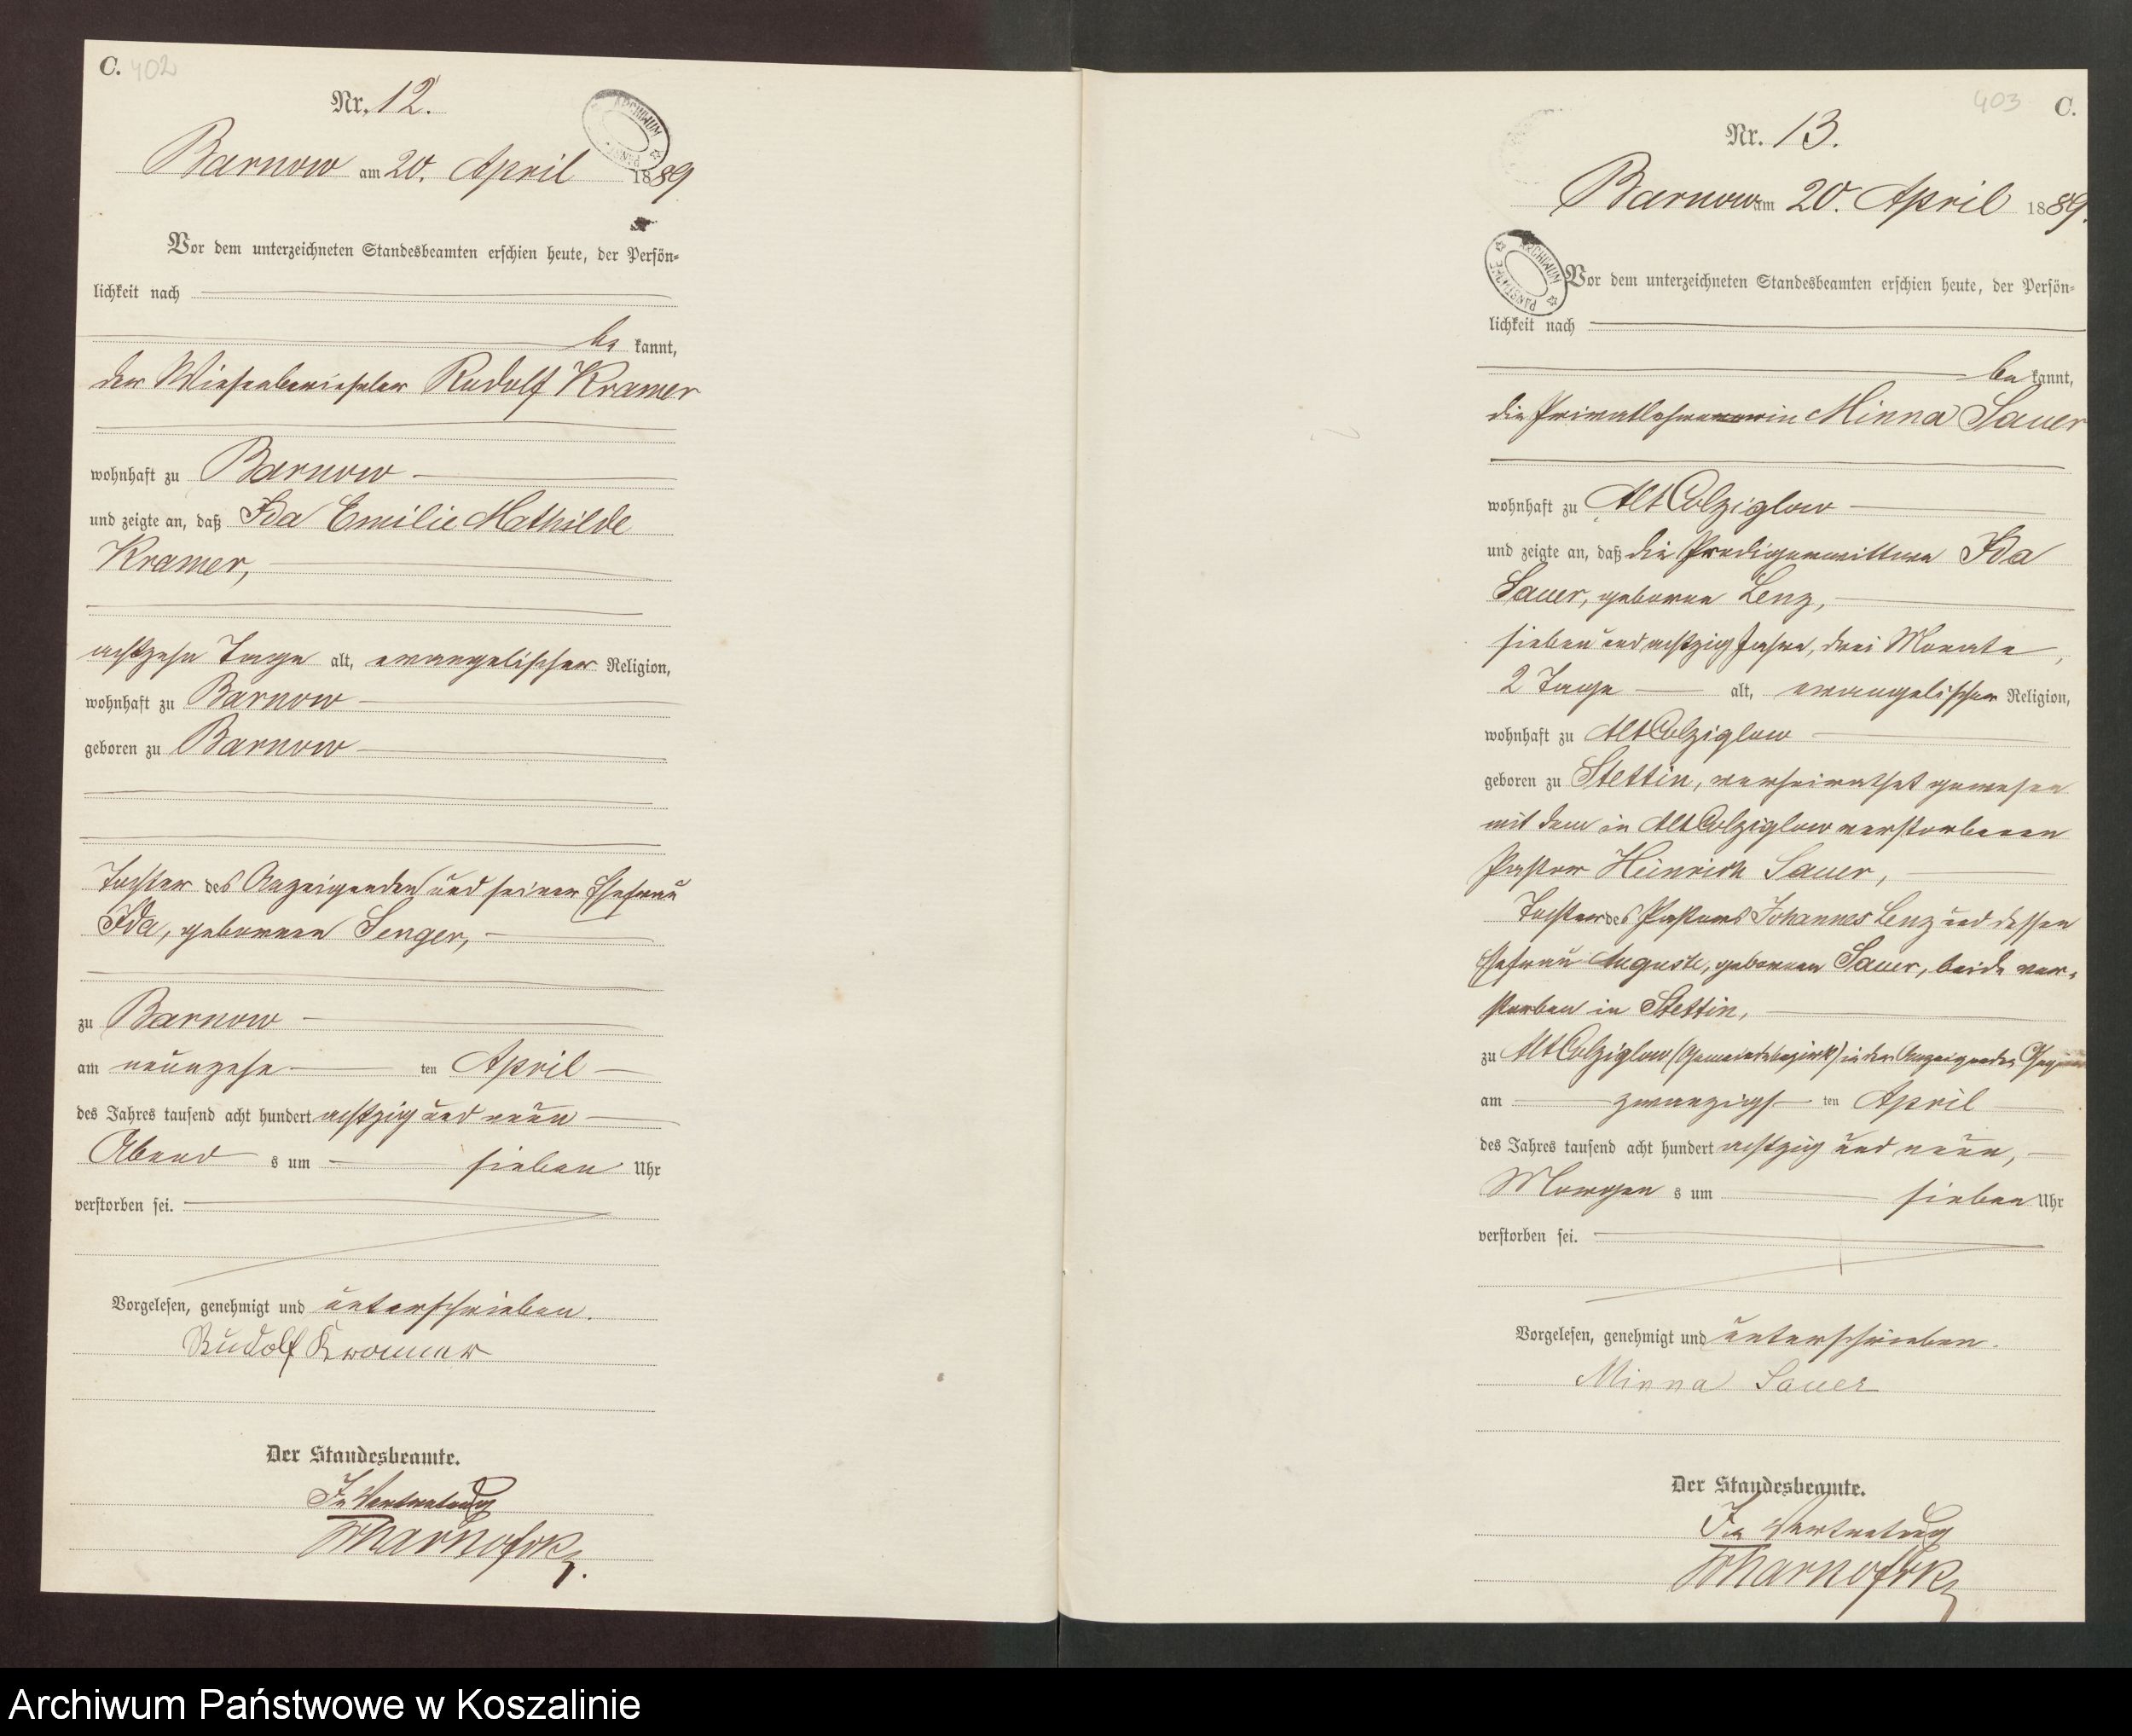 C. 402
Nr. 12.
ARCHIWUM PAŃST
Barnow am 20. April 1889
Vor dem unterzeichneten Standesbeamten erschien heute, der Persön-
lichkeit nach
be kannt,
der Wiesenberieseler Rudolf Kramer
wohnhaft zu Barnow
und zeigte an, daß Ida Emilie Mathilde
Kramer,
achtzehn Tage alt, evangelischer Religion,
wohnhaft zu Barnow
geboren zu Barnow
Tochter des Anzeigenden und seiner Ehefrau
Ida, geborenen Senger,
zu Barnow
am neunzehn ten April
des Jahres tausend acht hundert achtzig und neun
Abend s um sieben Uhr
verstorben sei.
Vorgelesen, genehmigt und unterschrieben.
Rudolf Krammer
Der Standesbeamte.
In Vertretung
403 C.
Nr. 13.
Barnow am 20. April 1889.
ARCHIWUM PAŃSTWOWE
Vor dem unterzeichneten Standesbeamten erschien heute, der Persön-
lichkeit nach
be kannt,
die Privatlehrerin Minna Sauer
wohnhaft zu Alt Colziglow
und zeigte an, daß die Predigerwittwe Ida
Sauer, geborene Lenz,
sieben und achtzig Jahre, drei Monate,
2 Tage alt, evangelischer Religion,
wohnhaft zu Alt Colziglow
geboren zu Stettin, verheirathet gewesen
mit dem in Alt Colziglow verstorbenen
Pastor Heinrich Sauer,
Tochter des Pastors Johannes Lenz und dessen
Ehefrau Auguste, geborenen Sauer, beide ver-
storben in Stettin,
zu Alt Colziglow (Gemeindebezirk) in der Anzeigenden
am zwanzigs ten April
des Jahres tausend acht hundert achtzig und neun,
Morgen s um sieben Uhr
verstorben sei.
Vorgelesen, genehmigt und unterschrieben.
Minna Sauer
Der Standesbeamte.
In Vertretung
Archiwum Państwowe w Koszalinie